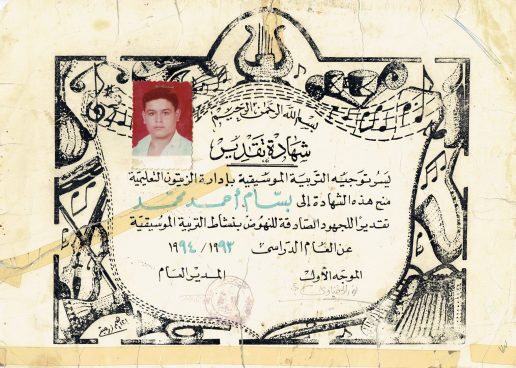 بسم الله الرحمن الرحيم
شهادة تقدير
يسر توجيه التربية الموسيقية بإدارة الزيتون التعليمية
منح هذه الشهادة إلى بسام أحمد محمد
تقديرًا للجهود الصادقة للنهوض بنشاط التربية الموسيقية
عن العام الدراسى ١٩٩٣ / ١٩٩٤
الموجه الأول المدير العام